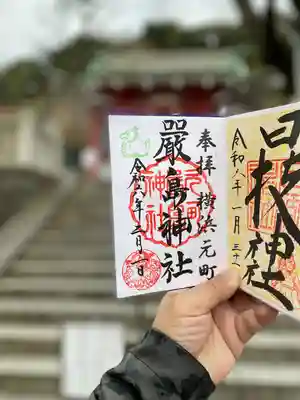 奉拝 横浜元町
嚴島神社
令和六年三月一日
日枝神社
令和六年一月三十一